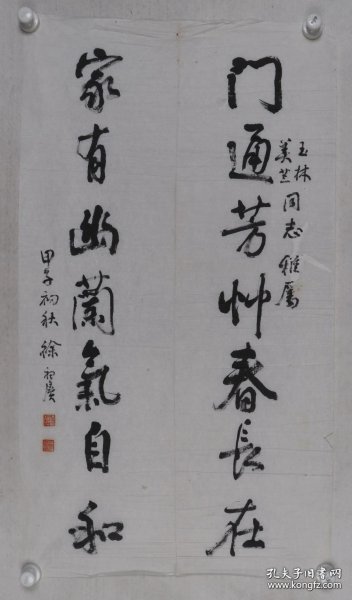 門通芳艸春長在
玉林
美芝同志雅屬
家有幽蘭氣自和
甲子初秋徐初廣
孔夫子旧书网